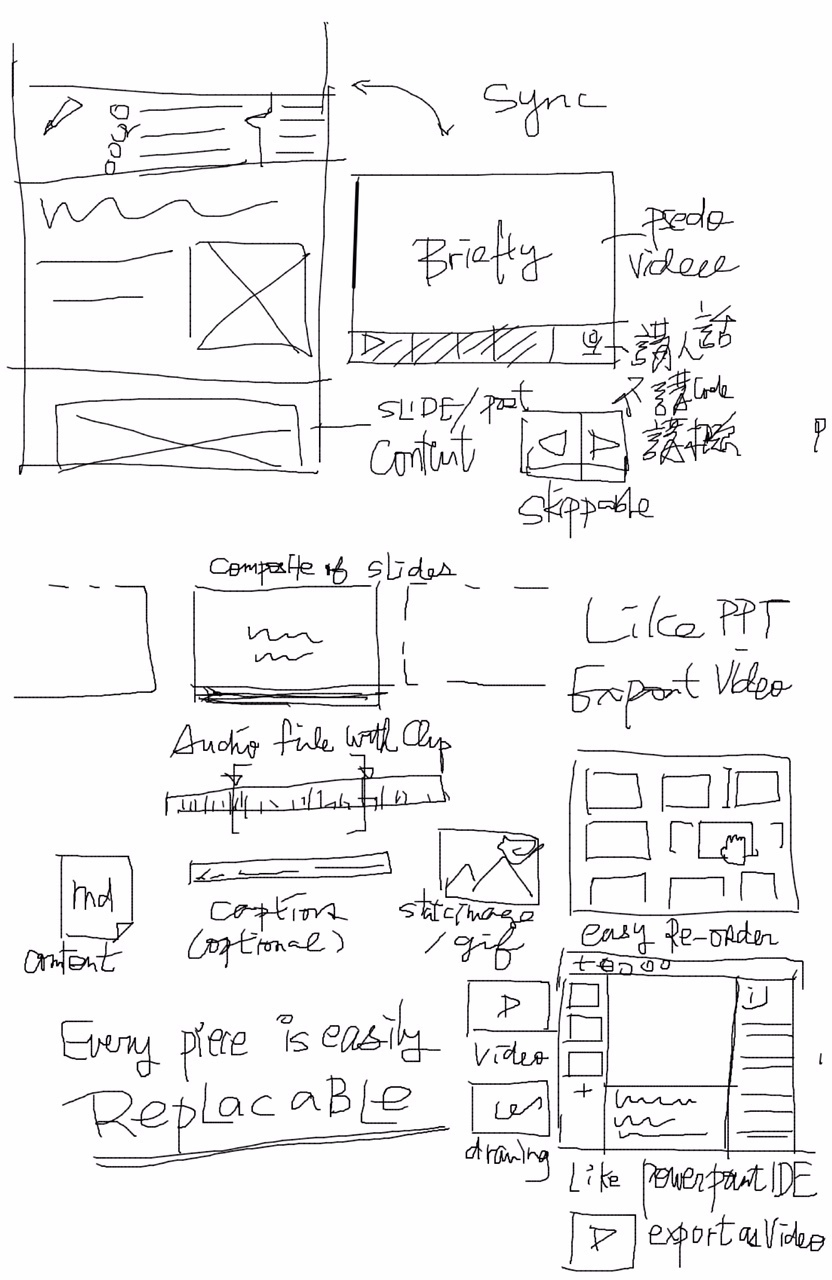 Sync
Briefty
psedo
videoe
講人話
講Code
SLIDE/post
Content
skippable
Composite of slides
Like PPT
Export Video
Audio file with Clip
md
content
caption
(optional)
static image
/gif
easy Re-order
Every piece is easily
REPLACABLE
video
drawing
Like powerpoint IDE
export as Video